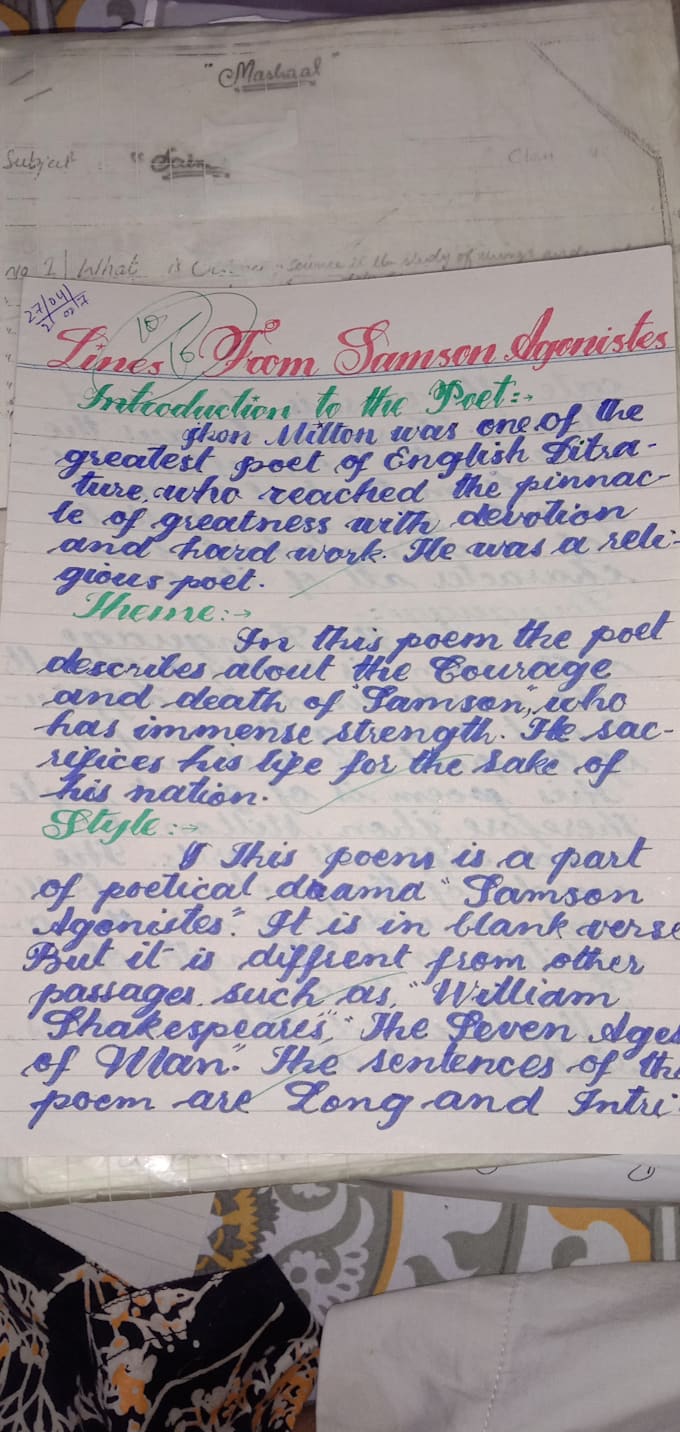 "Mashaal"
Subject
No 1 What is science is the study of things
27/04/
Lines From Samson Agonistes
Introduction to the Poet:→
Jhon Milton was one of the
greatest poet of English Litra-
ture, who reached the pinnac-
le of greatness with devotion
and hard work. He was a reli-
gious poet.
Theme:→
In this poem the poet
describes about the Courage
and death of "Samson", who
has immense strength. He sac-
rifices his life for the sake of
his nation.
Style:→
This poem is a part
of poetical drama "Samson
Agonistes". It is in blank verse
But it is diffrent from other
passages such as, "William
Shakespeares", "The Seven Ages
of Man". The sentences of the
poem are Long and Intri-